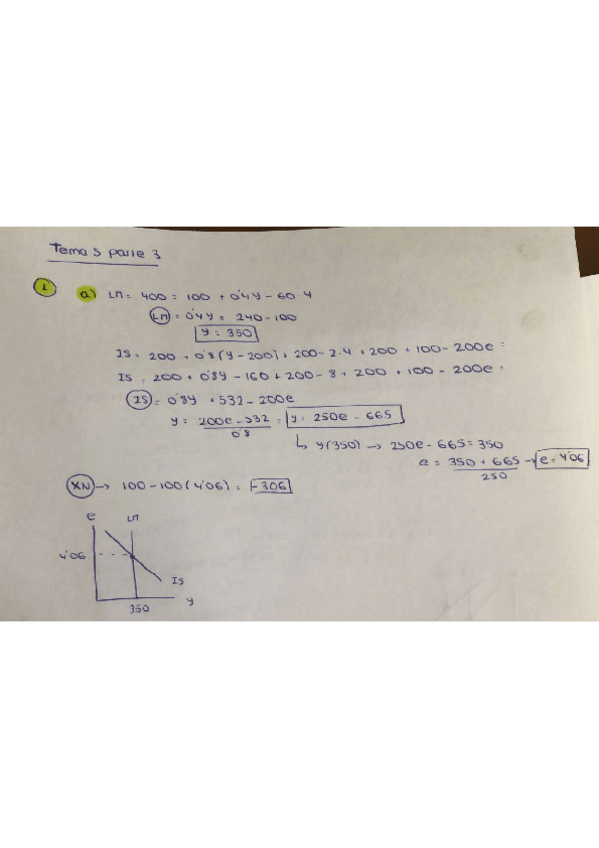 Tema 5 parte 3
1 a) LM = 400 = 100 + 0'4Y - 60·4
LM = 0'4Y = 240 - 100
Y = 350
IS = 200 + 0'8(Y - 200) + 200 - 2·4 + 200 + 100 - 200e =
IS = 200 + 0'8Y - 160 + 200 - 8 + 200 + 100 - 200e =
IS = 0'8Y + 532 - 200e
Y = 200e - 532 / 0'8 = Y = 250e - 665
↳ Y(350) → 250e - 665 = 350
e = 350 + 665 / 250 → e = 4'06
XN → 100 - 100(4'06) = -306
e LM
4'06
IS
350 Y